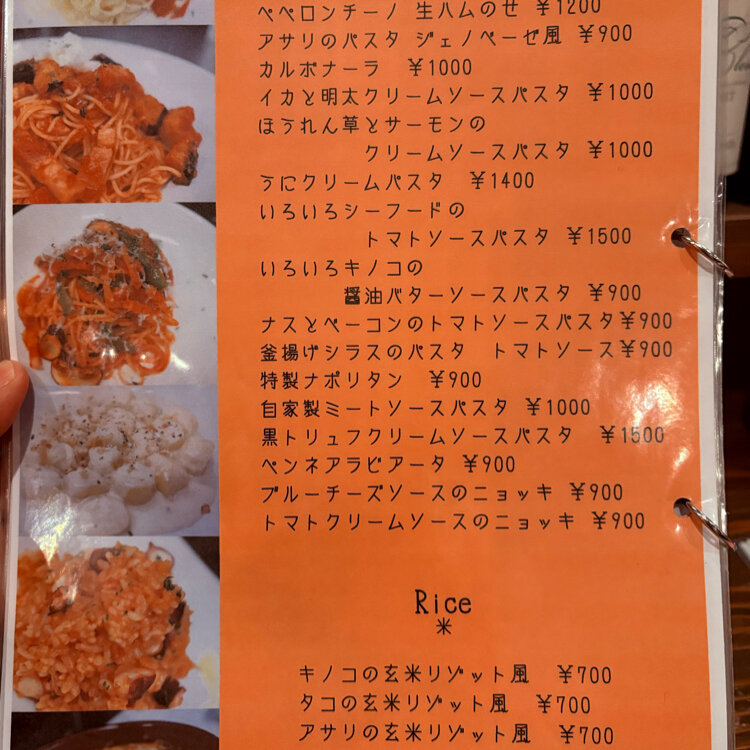 ペペロンチーノ 生ハムのせ ¥1200
アサリのパスタ ジェノベーゼ風 ¥900
カルボナーラ ¥1000
イカと明太クリームソースパスタ ¥1000
ほうれん草とサーモンの
クリームソースパスタ ¥1000
うにクリームパスタ ¥1400
いろいろシーフードの
トマトソースパスタ ¥1500
いろいろキノコの
醤油バターソースパスタ ¥900
ナスとベーコンのトマトソースパスタ¥900
釜揚げシラスのパスタ トマトソース¥900
特製ナポリタン ¥900
自家製ミートソースパスタ ¥1000
黒トリュフクリームソースパスタ ¥1500
ペンネアラビアータ ¥900
ブルーチーズソースのニョッキ ¥900
トマトクリームソースのニョッキ ¥900
Rice
米
キノコの玄米リゾット風 ¥700
タコの玄米リゾット風 ¥700
アサリの玄米リゾット風 ¥700